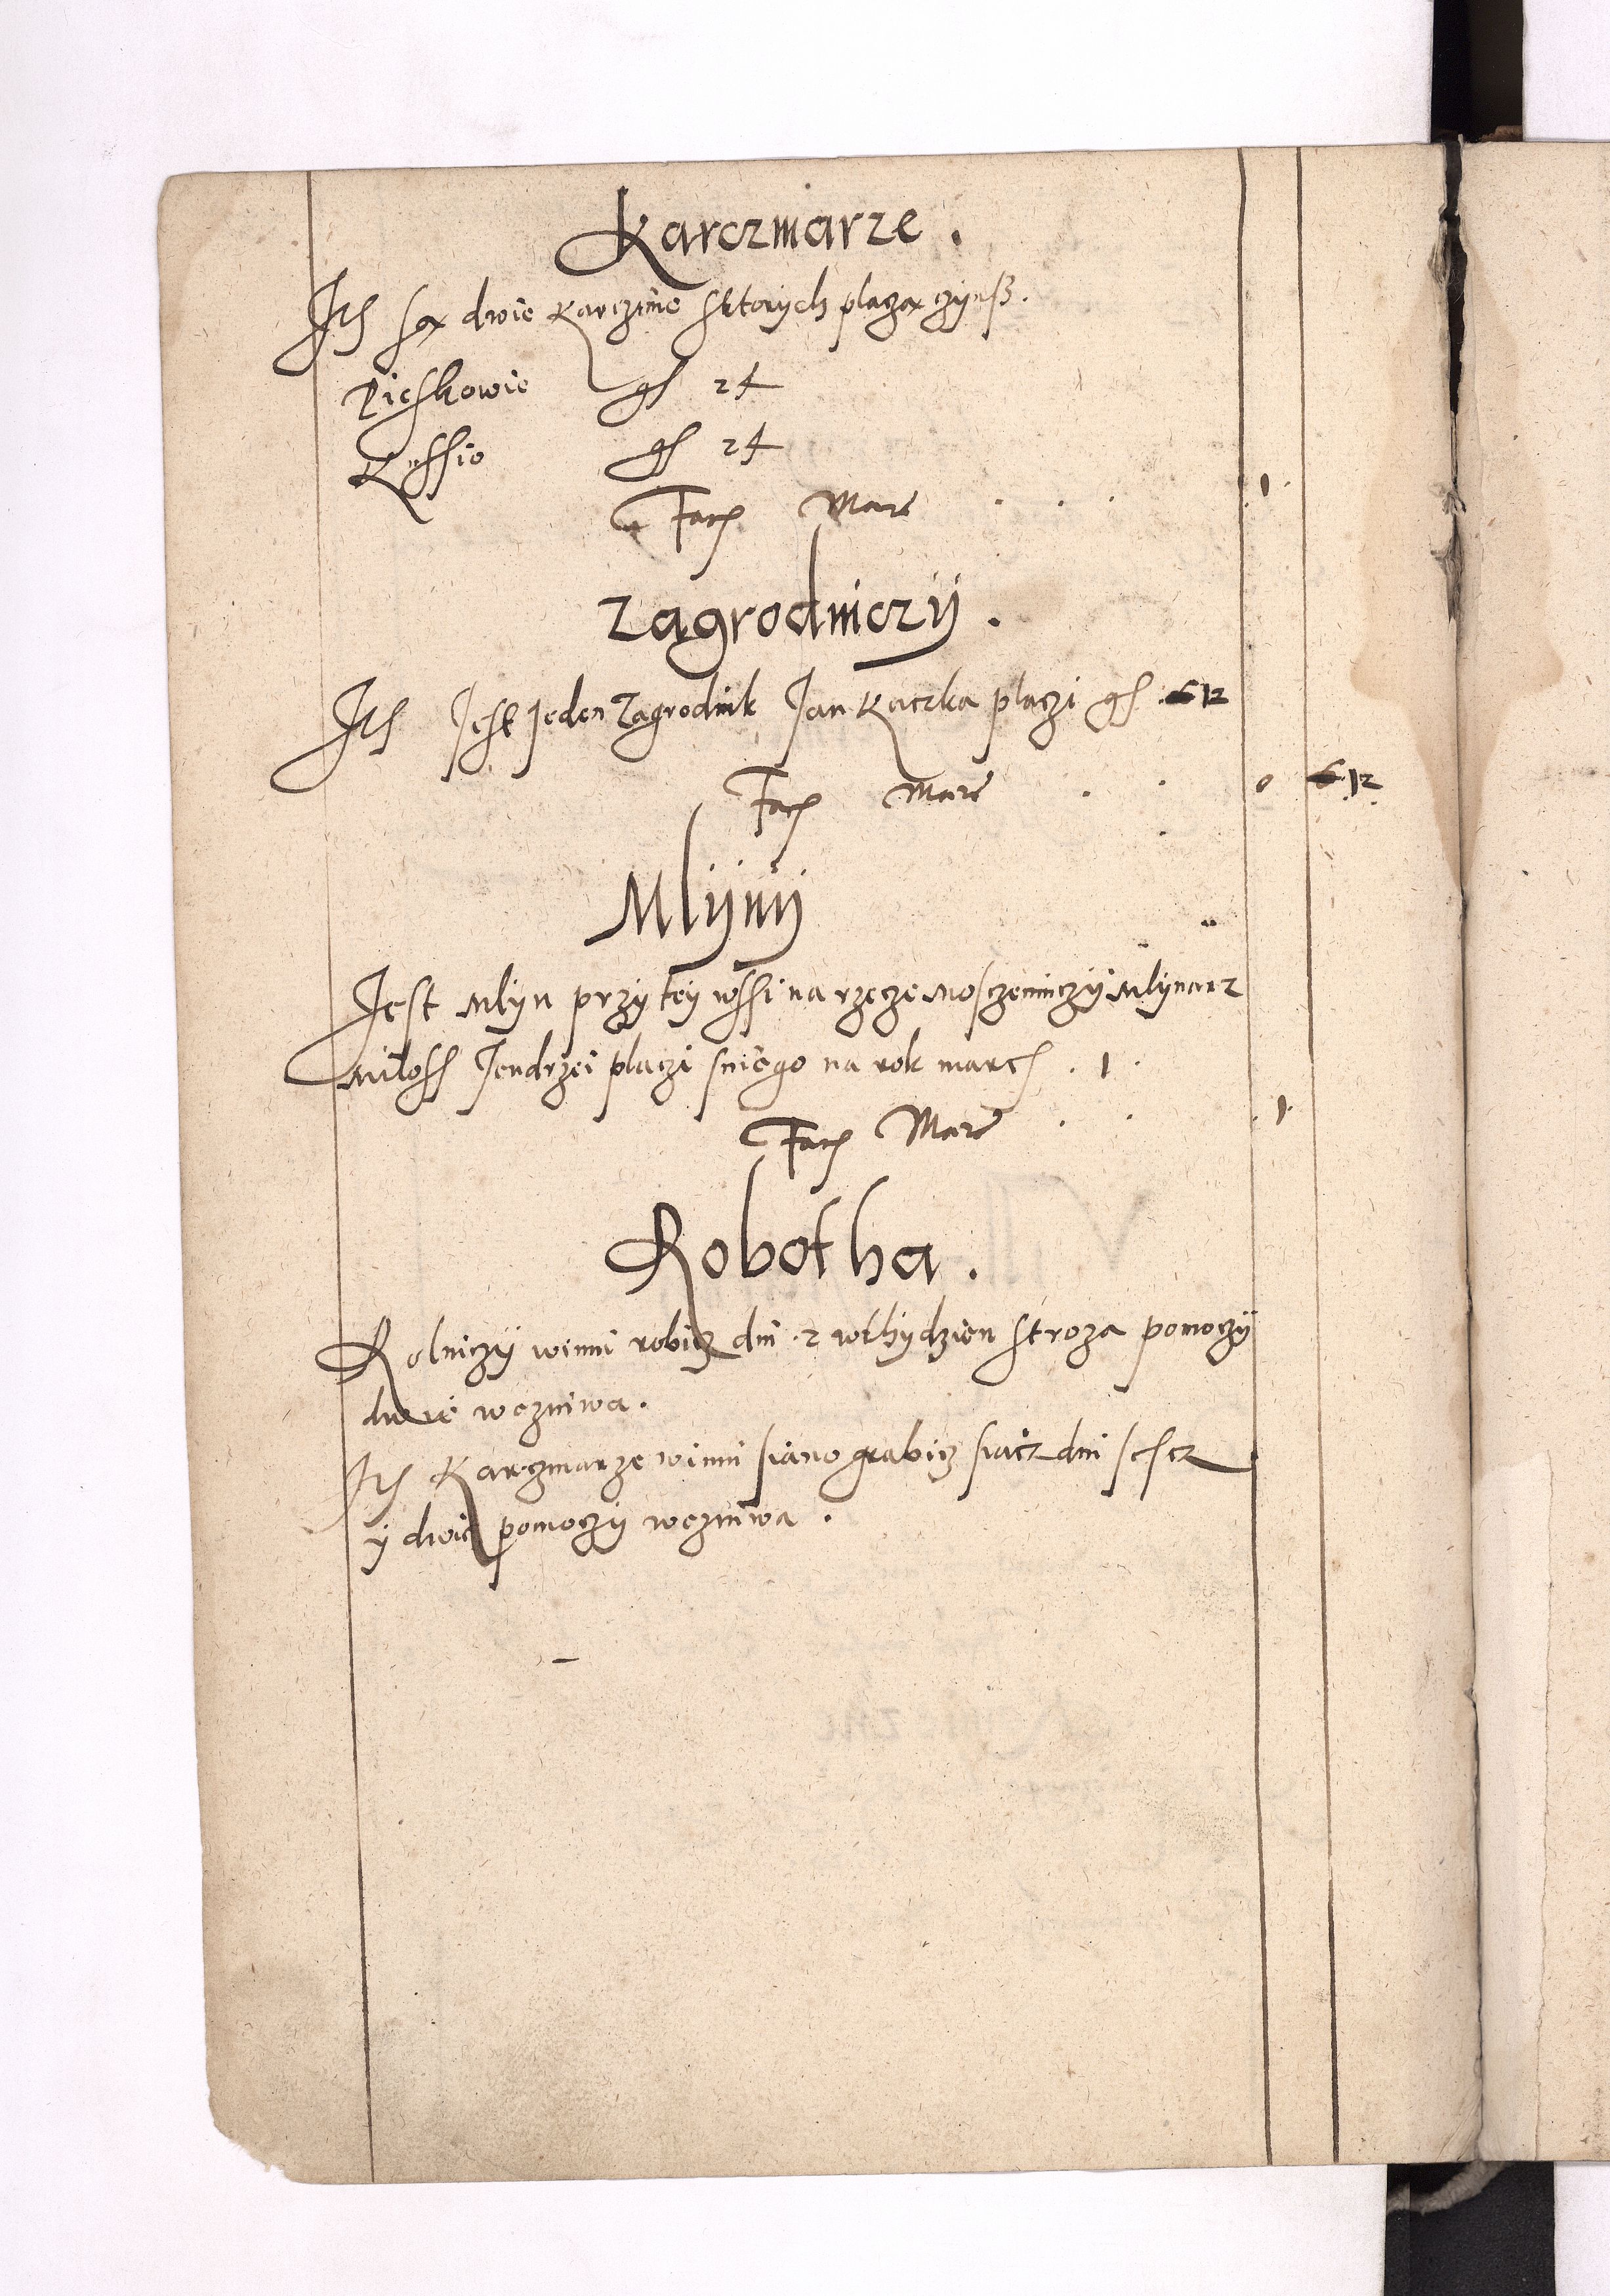 Karczmarze .
Its są dwie karczmie sktorych placzą czynß .
Pieskowie gs 24
Kessio gs 24
Facs Marc . . . 1 .
Zagrodniczÿ .
Its Jest Jeden Zagrodnik Jan Kaczka placzi gs 12
Facs Marc . . 0 12 .
Mlÿnÿ
Jest Mlyn przy teÿ wssi na rzecze Mosczenniczÿ Mlynarz
Miloss Jendrzei placzi sniego na rok marcs . 1 .
Facs Marc . . . 1 .
Robotha .
Rolniczÿ winni robicz dni . 2 wthydzien stroza pomoczÿ
dwie wezniwa .
Its Karczmarze winni siano grabicz siacz dni sescz
ÿ dwie pomoczÿ wezniwa .